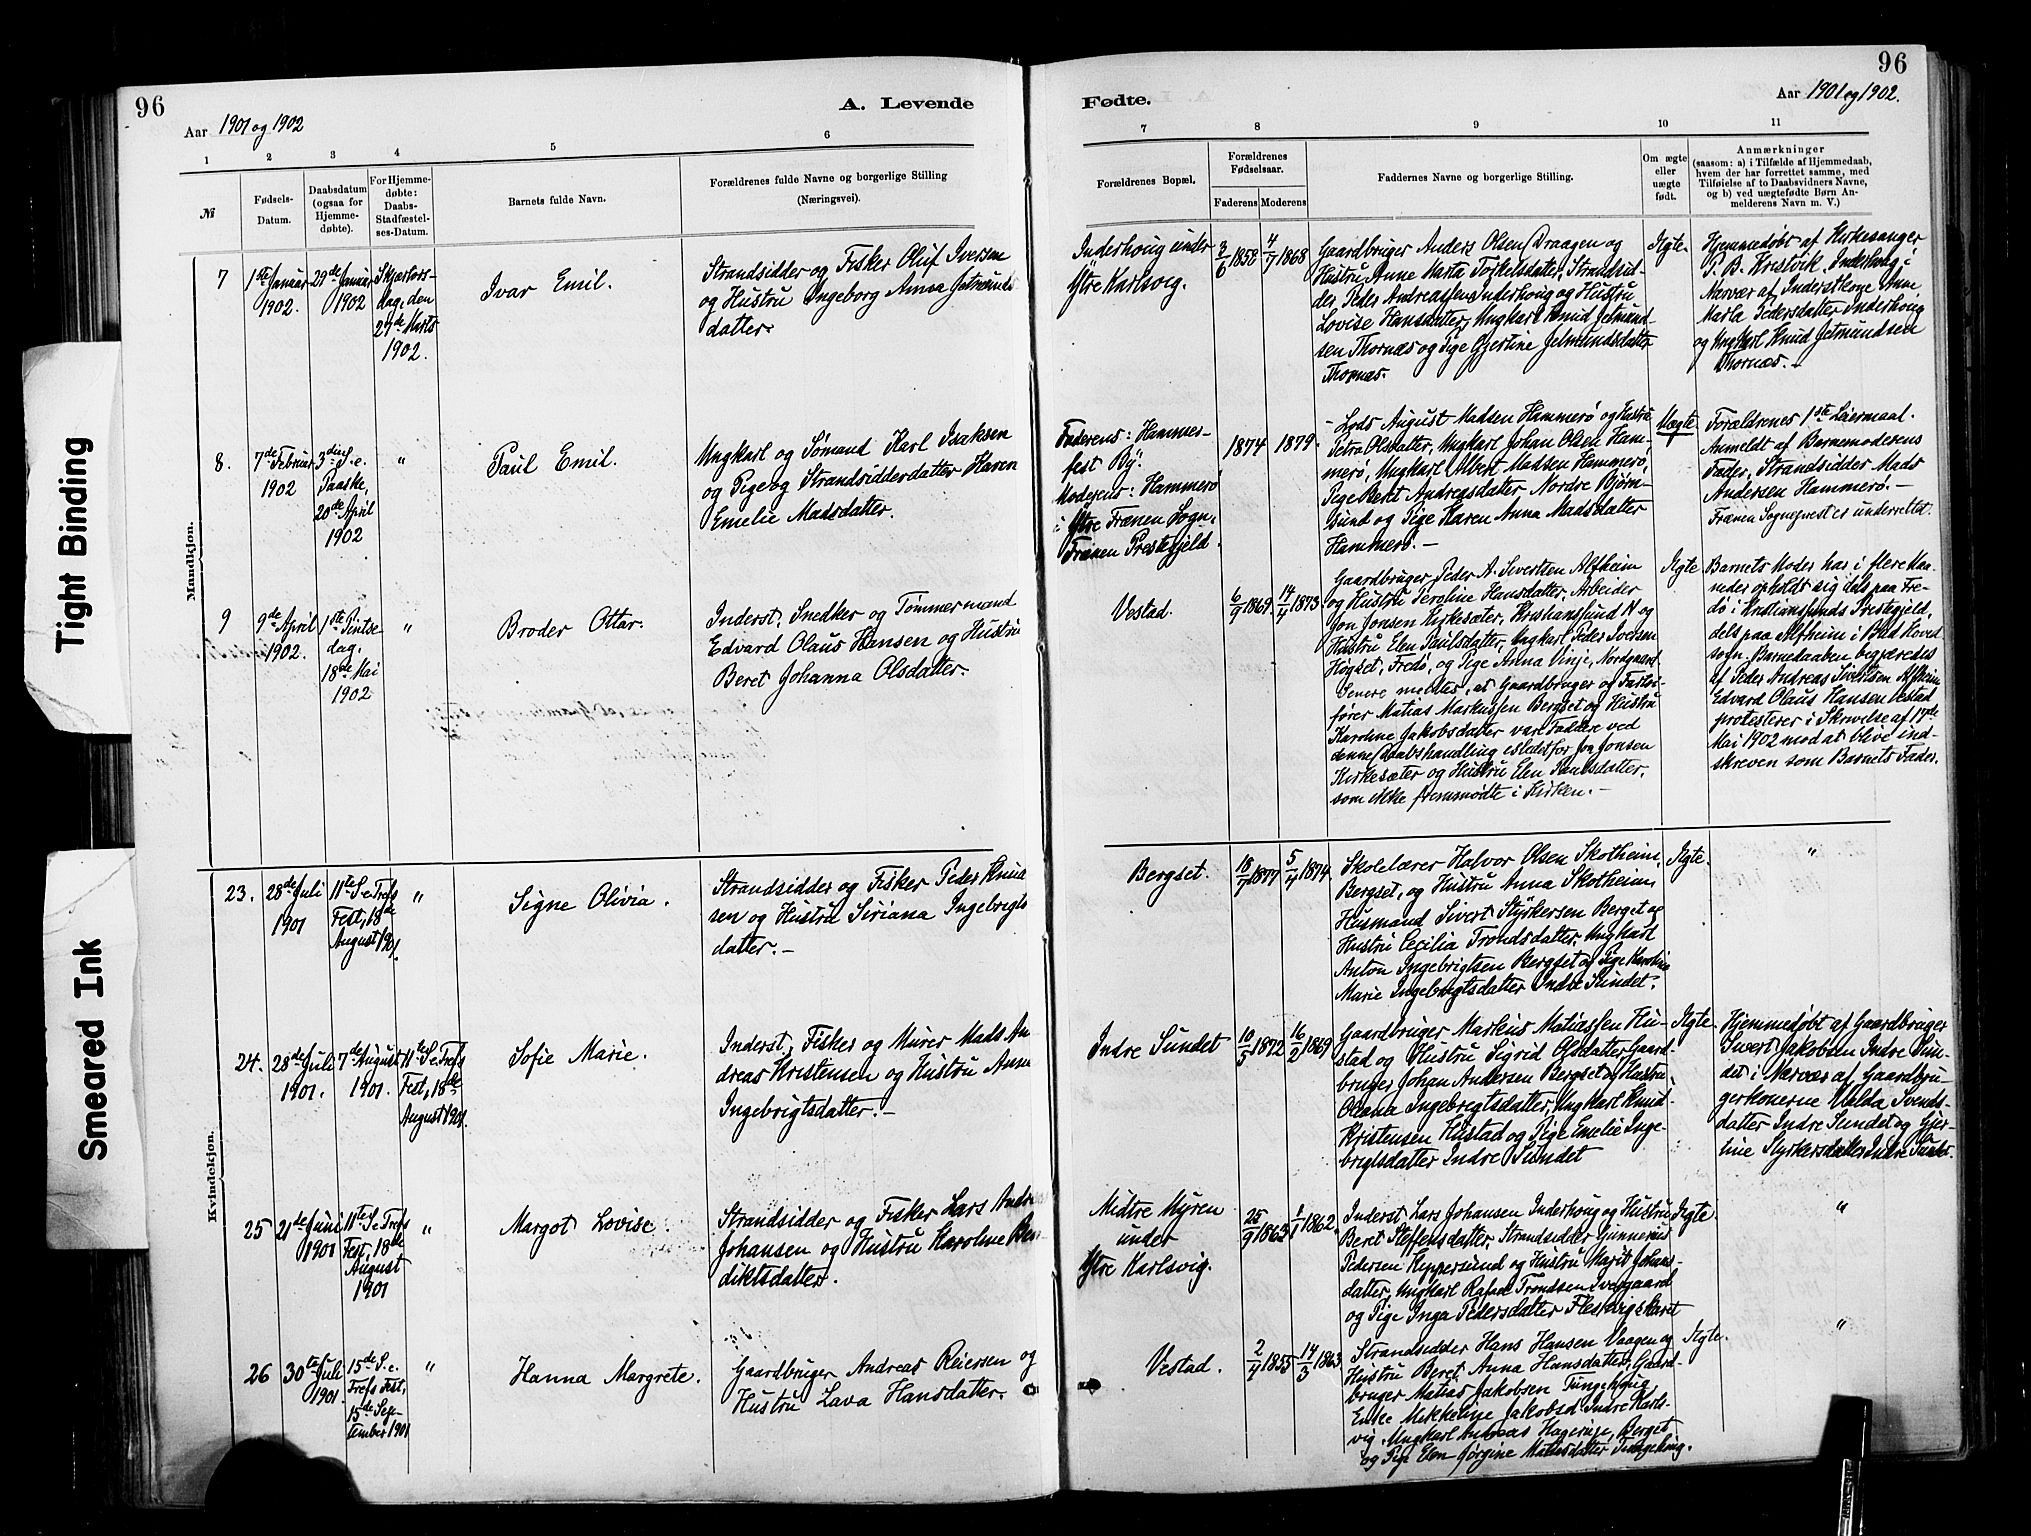 96
Aar 1901 og 1902
A. Levende
Fødte.
Aar 1901 og 1902.
96
1
2
3
4
5
6
7
8
9
10
11
№
Fødsels-
Datum.
Daabsdatum
(ogsaa for
Hjemme-
døbte).
For Hjemme-
døbte:
Daabs-
Stadfæstel-
ses-Datum.
Barnets fulde Navn.
Forældrenes fulde Navne og borgerlige Stilling
(Næringsvei).
Forældrenes Bopæl.
Forældrenes
Fødselsaar.
Faderens
Moderens
Faddernes Navne og borgerlige Stilling.
Om ægte
eller
uægte
født.
Anmærkninger
(saasom: a) i Tilfælde af Hjemmedaab,
hvem der har forrettet samme, med
Tilføielse af to Daabsvidners Navne,
og b) ved uægtefødte Børn An-
melderens Navn m. V.)
Mandkjøn.
7
1ste Januar
1902.
29de Januar
1902
Skjærtors-
dag, den
27de Marts
1902.
Ivar Emil.
Strandsidder og Fisker Oluf Iversen
og Hustru Ingeborg Anna Jetmunds
datter.
Inderhoug under
Ytre Karlsvig.
3/6 1858
4/7 1868
Gaardbruger Anders Olsen Draagen og
Hustru Anne Marta Torkelsdatter, Strandsid-
der Peder Andreassen Inderhoug og Hustru
Lovise Hansdatter, Ungkarl Knud Jetmund-
sen Thornæs og Pige Gjertine Jetmundsdatter
Thornæs.
Ægte.
Hjemmedøbt af Kirkesanger
P. B. Kristvik, Inderhoug i
Nærvær af Inderstkone Anne
Marta Pedersdatter Inderhoug
og Ungkarl Knud Jetmundsen
Thornæs. –
8.
7de Februar
1902
3die S. e.
Paaske,
20de April
1902
"
Paul Emil.
Ungkarl og Sømand Karl Isaksen
og Pige og Strandsidderdatter Karen
Emelie Madsdatter.
Faderens: Hammer-
fest By.
Moderens: Hammerø
i Ytre Frænen Sogn,
Frænen Prestegjeld.
1874
1879.
– Lods August Madsen Hammerø og Hustru
Petra Olsdatter, Ungkarl Johan Olsen Ham-
merø, Ungkarl Albert Madsen Hammerø,
Pige Beret Andreasdatter, Nordre Bjørn-
sund og Pige Karen Anna Madsdatter
Hammerø. –
Uægte.
Forældrenes 1ste Leiermaal.
Anmeldt af Barnemoderens
Fader, Strandsidder Mads
Andersen Hammerø. –
Frænen Sogneprest er underrettet.
9
9de April
1902.
1ste Pintse-
dag,
18de Mai
1902
"
Broder Ottar.
Inderst, Snedker og Tømmermand
Edvard Olaus Hansen og Hustru
Beret Johanna Olsdatter.
Vestad.
6/9 1869.
14/4 1873
Gaardbruger Peder A. Sivertsen Alfheim
og Hustru Peroline Hansdatter, Arbeider
Jon Jonsen Kirkesæter, Kristiansund N og
Hustru Elen Paulsdatter, Ungkarl Peder Iversen
Høgset, Fredø, og Pige Anna Vinje, Nordgaard
Senere meldtes, at Gaardbruger og Fartøi-
fører Matias Markussen Bergset og Hustru
Karoline Jakobsdatter vare Faddere ved
denne Daabshandling istedetfor Jon Jonsen
Kirkesæter og Hustru Elen Paulsdatter,
som ikke fremmødte i Kirken. –
Ægte
Barnets Moder har i flere Maa-
neder opholdt sig dels paa Fre-
dø i Kristiansunds Prestegjeld,
dels paa Alfheim i Bud Hoved-
sogn. Barnedaaben begjæredes
af Peder Andreas Sivertsen Alfheim
Edvard Olaus Hansen Vestad
protesterer i Skrivelse af 17de
Mai 1902 mod at blive ind-
skreven som Barnets Fader.
Kvindekjøn.
23.
28de Juli
1901
11te S. e. Tref.
Fest, 18de
August 1901.
"
Signe Olivia.
Strandsidder og Fisker Peder Knud
sen og Hustru Siriana Ingebrigts
datter. –
Bergset.
18/7 1877
5/4 1874
Skolelærer Halvor Olsen Skotheim,
Bergset, og Hustru Anna Skotheim
Husmand Sivert Styrkersen Berget og
Hustru Cecilia Trondsdatter, Ungkarl
Anton Ingebrigtsen Bergset og Pige Karoline
Marie Ingebrigtsdatter Indre Sundet.
Ægte.
"
24.
28de Juli
1901.
7de August
1901.
11te S. e. Tref.
Fest, 18de
August 1901.
Sofie Marie.
Inderst, Fisker og Murer Mads An
dreas Kristensen og Hustru Anne
Ingebrigtsdatter. –
Indre Sundet
10/5 1872
16/2 1869
Gaardbruger Marius Matiassen Hu-
stad og Hustru Sigrid Olsdatter, Gaard-
bruger Johan Andersen Bergset og Hustru
Oleana Ingebregtsdatter, Ungkarl Knud
Kristensen Hustad og Pige Emelie Inge-
brigtsdatter Indre Sundet
Ægte.
Hjemmedøbt af Gaardbruger
Sivert Jakobsen Indre Sun-
det i Nærvær af Gaardbru-
gerkonerne Valda Svends-
datter Indre Sundet og Gjer-
tine Styrkersdatter Indre Sundet.
25
21de Juni
1901
11te S. e. Tref.
Fest, 18de
August
1901
"
Margot Lovise.
Strandsidder og Fisker Lars Andre
Johansen og Hustru Karoline Ben
diktsdatter.
Midtre Myren
under
Ytre Karlsvig.
25/9 1863
1/1 1862.
Inderst Lars Johansen Inderhoug og Hustru
Beret Steffensdatter, Strandsidder Gunnerius
Pedersen Keppersund og Hustru Marit Johans-
datter, Ungkarl Rafael Trondsen Ivergaard
og Pige Inga Pedersdatter Flesvigskaret
Ægte.
"
26
30te Juli
1901.
15de S. e.
Tref. Fest,
15de Sep-
tember 1901
"
Hanna Margrete.
Gaardbruger Andreas Reiersen og
Hustru Lava Hansdatter.
Vestad.
2/4 1855
14/3 1863
Strandsidder Hans Hansen Vaagen og
Hustru Beret Anna Hansdatter, Gaard-
bruger Matias Jakobsen Tungehoug,
Enke Mikkeline Jakobsd. Indre Karls-
vig, Ungkarl Andreas Hagerup, Berget
og Pige Elen Jørgine Matiasdatter Tungehoug.
Ægte.
"
Tight Binding
Smeared Ink